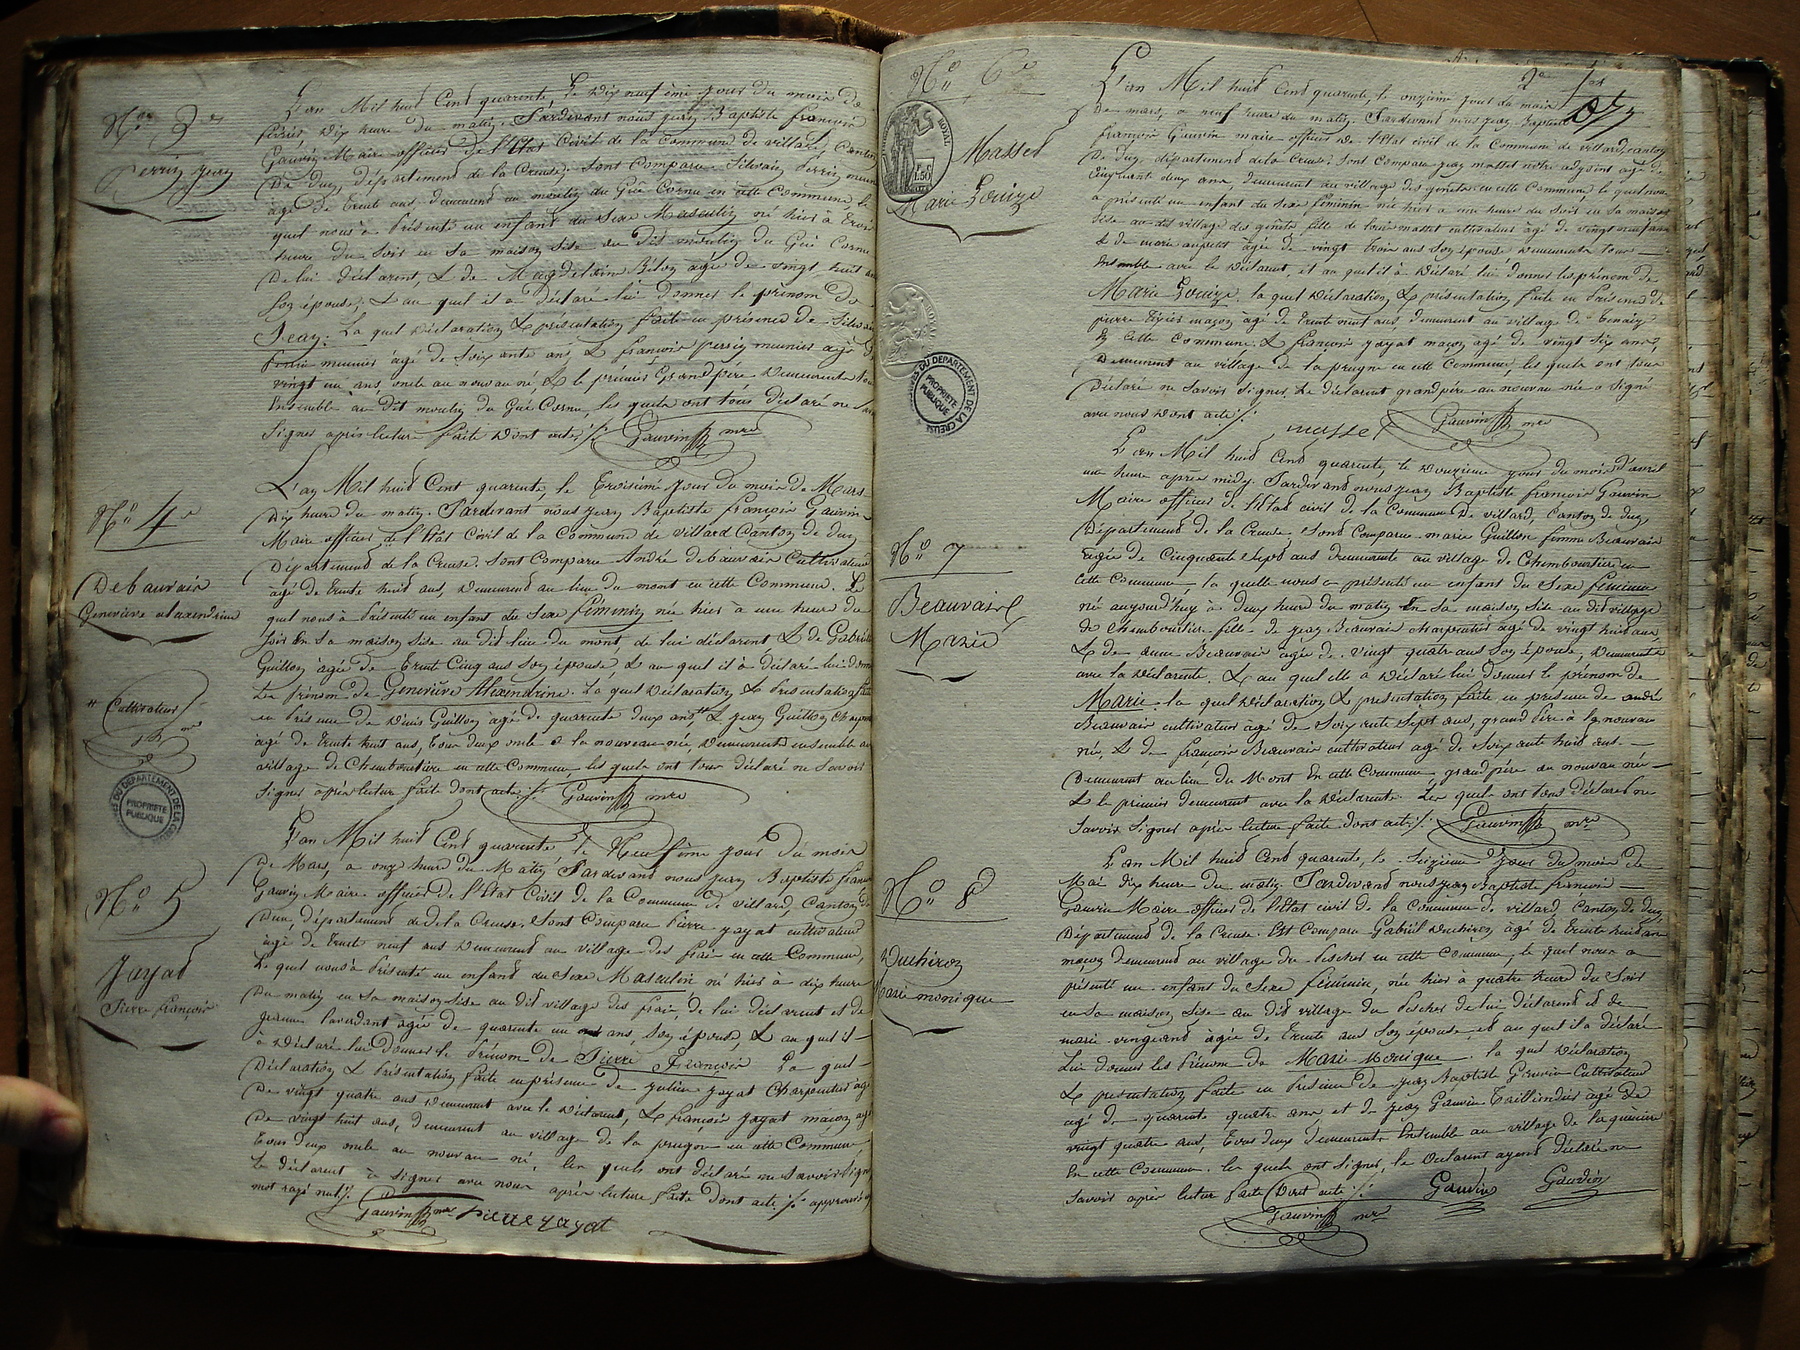 N.° 3.e
Perrin Jean
L'an Mil huit Cent quarante, le dix neuf ième jour du mois de
février, dix heure du matin. Pardevant nous jean Baptiste françois
Gauvin Maire officier de l'Etat Civil de la Commune de villard, Canton
De Dun, département de la Creuse. Sont Comparu Silvain Perrin meunier
âgé de trente ans, demeurand au moulin du Gué Cornu en cette Commune, le
quel nous à présenté un enfant du Sexe Masculin né hier à trois
heure du Soir en Sa maison Sise au dit moulin du Gué Cornu
De lui déclarent, & de Magdeleine agée de vingt huit ans
Son épouse; & au quel il a déclaré lui donner le prénom de
Jean. La quel déclaration & présentation faite en présence de Silvain
Perrin meunier âgé de Soixante ans, & françois perrin meunier agé de
vingt un ans, oncle au nouveau né & le prémier Grand père demeurents tous
Ensemble au dit moulin du Gué Cornu, les quels ont tous déclaré ne Savoir
Signer après lecture faite dont acte ./. Gauvin mre
N.° 4.e
Debauvais
Geneviève alexendrine
" Cultivateur /.
L'an Mil huit Cent quarante, le troisième jour du mois de Mars
Dix heure du matin. Pardevant nous jean Baptiste françois Gauvin
Maire officier de l'Etat Civil de la Commune de villard Canton de Dun
Département de la Creuse. Sont Comparu André debauvais Cultivateur
âgé de trente huit ans, demeurend au lieu du mont en cette Commune. Le
quel nous à présenté un enfant du Sexe féminin née hier à une heure du
Soir En Sa maison Sise au dit lieu du mont, de lui déclarent, & de Gabrielle
Guillon âgée de trente Cinq ans Son épouse, & au quel il à déclaré lui donner
Le Prénom de Geneviève Alexendrine. La quel déclaration & présentation faite
en présence de Denis Guillon âgé de quarente deux ans " & jean Guillon
âgé de trente huit ans, tous deux oncle à la nouveau née, demeurents ensemble au
village de Chemboutière en cette Commune, les quels ont tous déclaré ne Savoir
Signer après lecture faite dont acte ./. Gauvin mre
N.° 5
Jayat
Pierre françois
L'an Mil huit Cent quarente le Neuf ième jour du mois
De Mars, à onze heure du Matin Pardevant nous jean Baptiste françois
Gauvin Maire officier de l'Etat Civil de la Commune de villard, Canton de
Dun, département de de la Creuse. Sont Comparu Pierre jayat cultivateur
âgé de trente neuf ans demeurend au village des frais en cette Commune,
Le quel nous à présenté un enfand du Sexe Masculin né hier à dix heure
Du matin en Sa maison Sise au dit village des frais, de lui déclarent et de
jeanne Lavardant agée de quarente un ans, Son épouse, & au quel il
à déclaré lui donner le Prénom de Pierre François La quel
Déclaration & Présentation faite en présence de julien jayat Charpentier âgé
De vingt quatre ans demeurent avec le déclarent, & françois jayat maçon âgé
De vingt huit ans, demeurent au village de la prugne en cette Commune
tous deux oncle au nouveau né. les quels ont déclaré ne Savoir Signer
Le déclarent à Signer avec nous après lecture faite dont acte ./. approuvé un
mot rayé nul ./. Gauvin mre pierre jayat
N.° 6.e
Massel
Marie Louize
ROYAL
1.50
L'an Mil huit Cent quarente, le onzième jour du mois
De mars, à neuf heure du matin. Pardevant nous jean Baptiste
françois Gauvin maire officier de l'Etat civil de la Commune de villard, canton
De Dun, département de la Creuse; Sont Comparu jean masset notre adjoint âgé de
Cinquante deux ans, demeurent au village des genêts en cette Commune, le quel nous
à présenté un enfant du Sexe féminin née hier à une heure du Soir en Sa maison
Sise au dit village des genêts fille de louis masset cultivateur âgé de vingt neuf ans
& de marie aupetit âgée de vingt trois ans Son épouse demeurents tous
Ensemble avec le déclarent, et au quel il à déclaré lui donner les prénom de
Marie Louize. la quel déclaration & présentation faite en présence de
pierre maçon âgé de trente neuf ans, demeurent au village de
En cette Commune. & françois jayat maçon âgé de vingt Six ans,
Demeurent au village de la prugne en cette Commune les quels ont tous
Déclaré ne Savoir Signer, Le déclarent grand père au nouveau née a Signé
avec nous dont acte ./. masset Gauvin mre
N.° 7
Beauvais
Marie
L'an Mil huit Cent quarente, le Douzième jour du mois d'avril
une heure après midy. Pardevand nous jean Baptiste françois Gauvin
Maire officier de l'Etat civil de la Commune de villard, Canton de dun,
Département de la Creuse. Sont Comparue marie Guillon femme Beauvais
âgée de Cinquante Sept ans demeurente au village de Chemboutière en
cette Commune la quelle nous à présenté un enfant du Sexe féminin
né aujourd'huy à deux heure du matin En Sa maison Sise au dit village
de Chemboutière fille de jean Beauvais charpentier âgé de vingt huit ans,
& de anne Beauvais âgée de vingt quatre ans Son épouse, demeurents
avec la déclarente. & au quel elle à déclaré lui donner le prénom de
Marie. la quel déclaration & présentation faite en présence de andré
Beauvais cultivateur âgé de Soixante Sept ans, grand père à la nouveau
née, & de françois Beauvais cultivateur agé de Soixante huit ans.
Demeurent au lieu du Mont en cette Commune, grand père au nouveau né
& le premier demeurent avec la déclarente. Les quels ont tous déclaré ne
Savoir Signer après lecture faite dont acte ./. Gauvin mre
N.° 8
Duchiron
Marie monique
L'an Mil huit Cent quarente, le Seizième jour du mois de
Mai dix heure du matin. Pardevand nous jean Baptiste françois
Gauvin Maire officier de l'Etat civil de la Commune de villard, Canton de dun
Département de la Creuse. Est Comparu Gabriel Duchiron âgé de trente huit ans
maçon demeurend au village du Pescher en cette Commune, le quel nous a
présenté un enfant du Sexe féminin, née hier à quatre heure du Soir
en Sa maison Sise au dit village du Pescher de lui déclarend et de
marie vingeand âgée de trente ans Son épouse, et au quel il a déclaré
Lui donner les Prénom de Marie Monique. la quel déclaration
& présentation faite en présence de jean Baptiste Gauvin Cultivateur
agé de quarente quatre ans et de jean Gauvin taillendier âgé de
vingt quatre ans, tous deux demeurents Ensemble au village de
En cette Commune. les quels ont Signer, le déclarent ayant déclaré ne
Savoir après lecture faite Dont acte ./. Gauvin Gauvin
Gauvin mre
ARCHIVES DU DEPARTEMENT DE LA CREUSE
PROPRIETE
PUBLIQUE
ARCHIVES DU DEPARTEMENT DE LA CREUSE
PROPRIETE
PUBLIQUE